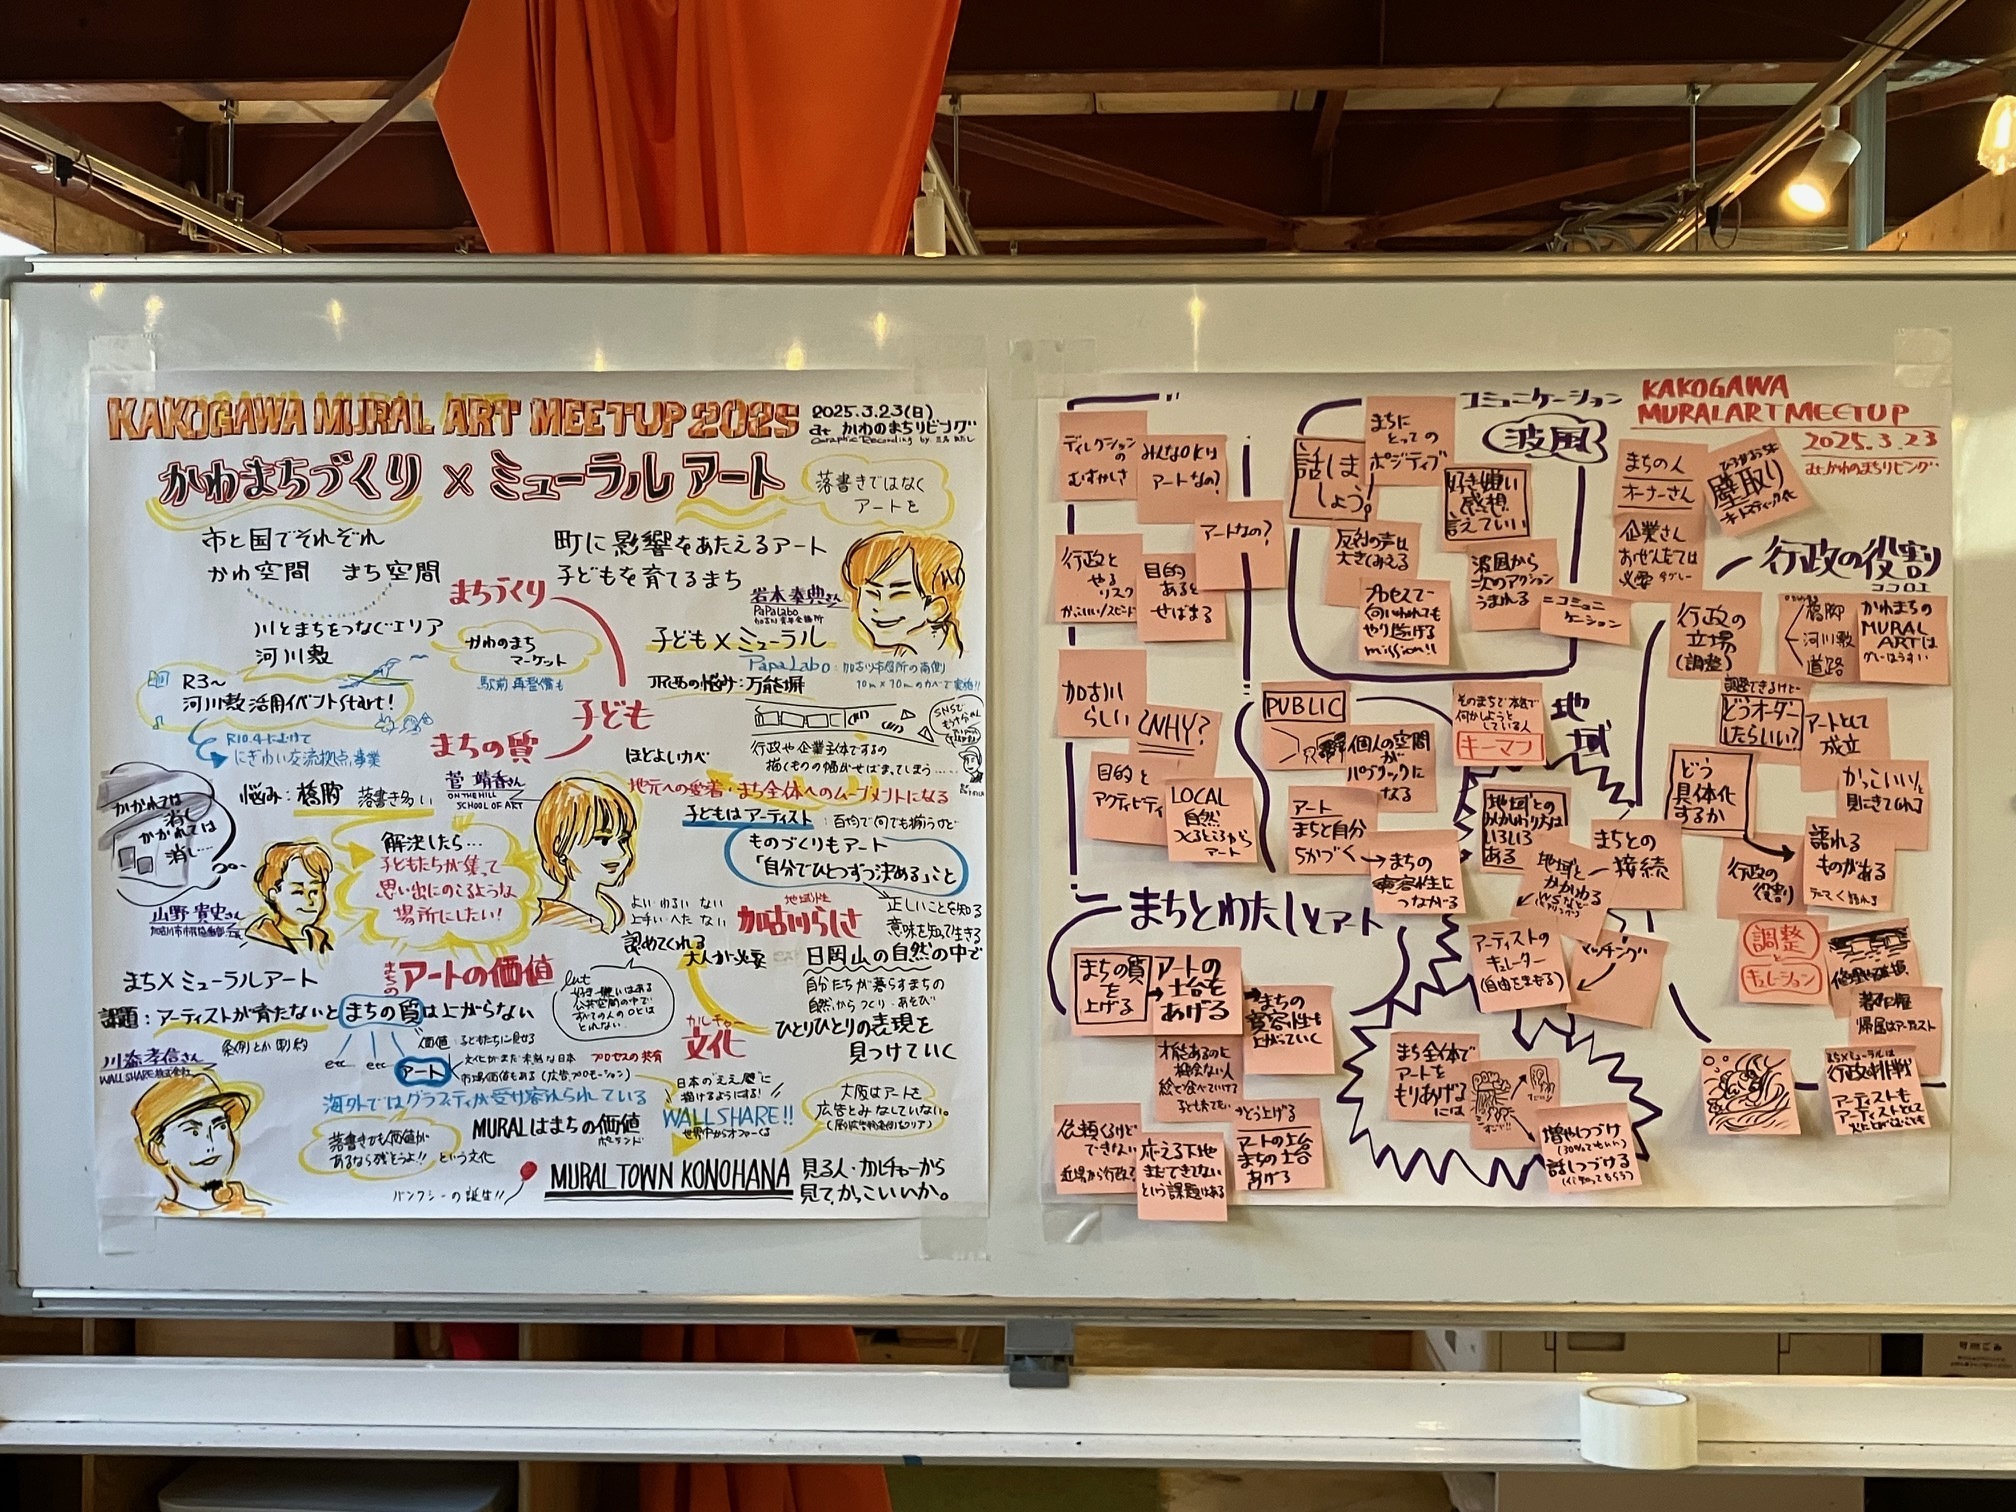 KAKOGAWA MURAL ART MEETUP 2025
2025.3.23(日)
at かわのまちリビング
Graphic Recording by
かわまちづくり × ミューラルアート
落書きではなく
アートを
市と国でそれぞれ
かわ空間 まち空間
川とまちをつなぐエリア
河川敷
かわのまち
マーケット
駅前再整備も
R3~
河川敷活用イベントstart!
R10.4にむけて
にぎわい交流拠点事業
まちづくり
子ども
まちの質
町に影響をあたえるアート
子どもを育てるまち
岩本泰典さん
PaPaLabo
子ども×ミューラル
PaPaLabo:加古川市役所の南側
10m×70mのカベで実施!!
万能塀
ほどよいカベ
行政や企業主体でするの
描くものの幅がせばまってしまう……
地元への愛着・まち全体へのムーブメントになる
子どもはアーティスト:百均で何でも揃うけど
ものづくりもアート
「自分でひとつずつ決める」こと
正しいことを知る
意味を知って生きる
かかれては
消し
かかれては
消し…
悩み:橋脚 落書き多い
菅 靖香さん
ON THE HILL
SCHOOL OF ART
解決したら…
子どもたちが集って
思い出にのこるような
場所にしたい!
山野 貴史さん
よい わるい ない
上手い へた ない
認めてくれる
大人が必要
地域性
加古川らしさ
日岡山の自然の中で
自分たちが暮らすまちの
自然からつくり・あそび
ひとりひとりの表現を
見つけていく
まち×ミューラルアート
まちの
アートの価値
but
好き嫌いはある
公共空間の中で
すべての人のOKは
とれない
カルチャー
文化
課題:アーティストが育たないとまちの質は上がらない
条例とか制約
川添孝信さん
WALLSHARE株式会社
etc
etc
アート
価値:子どもたちに見せる
文化がまだ未熟な日本
プロセスの共有
市場価値もある(広告,プロモーション)
海外ではグラフィティが受け容れられている
落書きでも価値が
あるなら残そうよ!!
という文化
MURALはまちの価値
バンクシーの誕生!!
日本の"ええ壁"に
描けるようにする!
WALLSHARE!!
世界中からオファーくる
大阪はアートを
広告とみなしていない。
MURAL TOWN KONOHANA
見る人・カルチャーから
見て,かっこいいか。
KAKOGAWA
MURAL ART MEETUP
2025.3.23
at かわのまちリビング
コミュニケーション
波風
ディレクションの
むずかしさ
みんなOKは
アートなの?
アートなの?
行政と
やる
リスク
かっこいい/スピード
目的
あると
せばまる
加古川
らしい
WHY?
目的と
アクティビティ
LOCAL
自然
つくるところから
アート
話しま
しょう。
まちに
とっての
ポジティブ
好き嫌い
感想
言えていい
反対の声は
大きくみえる
波風から
次のアクション
うまれる
プロセスで
何いわれても
やり遂げる
mission!!
=コミュニ
ケーション
まちの人
オーナーさん
壁取り
企業さん
おぜんたては
必要
行政の役割
ココロエ
行政の
立場
(調整)
橋脚
河川敷
道路
かわまちの
MURAL
ARTは
調整できるけど
どうオーダー
したらいい?
アートとして
成立
どう
具体化
するか
かっこいいと
見にきてくれる
語れる
ものがある
行政の
役割
調整
と
キュレーション
著作権
帰属はアーティスト
まち×ミューラルは
行政の判断
アーティストも
アーティストとして
PUBLIC
個人の空間
が
パブリックに
なる
アート
まちと自分
ちかづく
まちの
寛容性に
つながる
地域
そのまちで本気で
何かしようと
している人
キーマン
地域との
かかわり方は
いろいろ
ある
まちとの
接続
地域と
かかわる
WSなど
アーティストの
キュレーター
(自由をまぜる)
マッチング
まちとわたしとアート
まちの質
を
上げる
アートの
土台を
あげる
まちの
寛容性も
上がっていく
才能あるのに
機会ない人
絵で食べていける
依頼くるけど
できない
応える下地
まだできてない
という課題はある
どう上げる
アートの土台
まちの土台
あげる
まち全体で
アートを
もりあげる
には
増やしつづけ
話しつづける